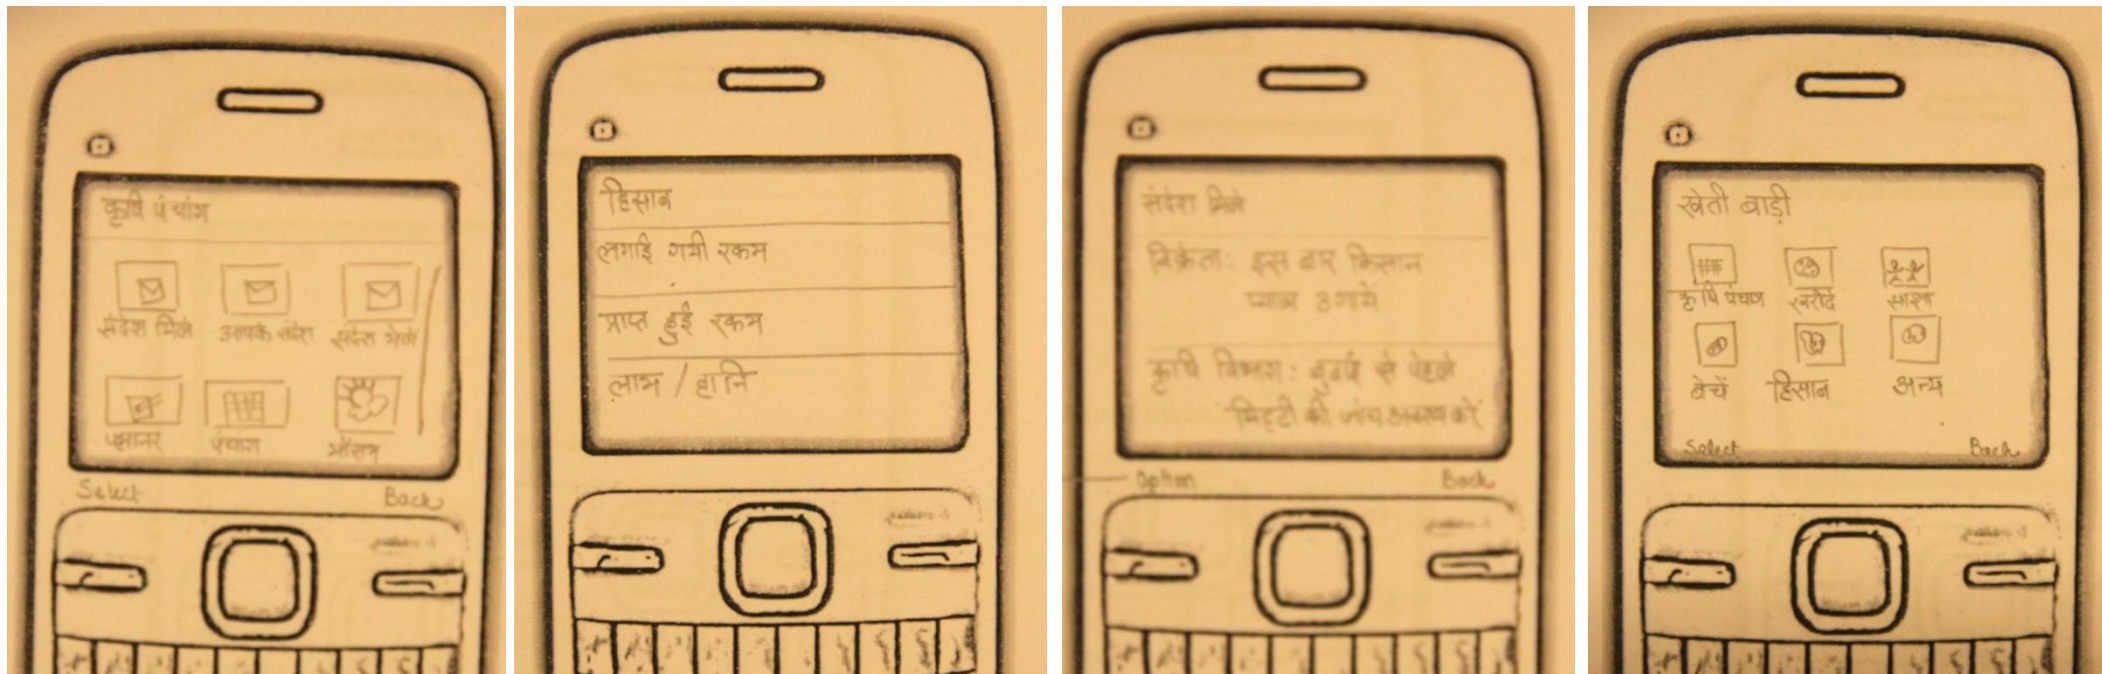 कृषि पंचांग
संदेश मिले आपके संदेश संदेश भेजें
पंचांग मौसम
Select Back
हिसाब
लगाई गयी रकम
प्राप्त हुई रकम
लाभ / हानि
संदेश मिले
विक्रेता: इस बार किसान
प्याज उगायें
कृषि विभाग: बुवाई से पेहले
मिट्टी की जांच अवश्य करें
Option Back
खेती बाड़ी
कृषि पंचांग खरीदें
बेचें हिसाब अन्य
Select Back